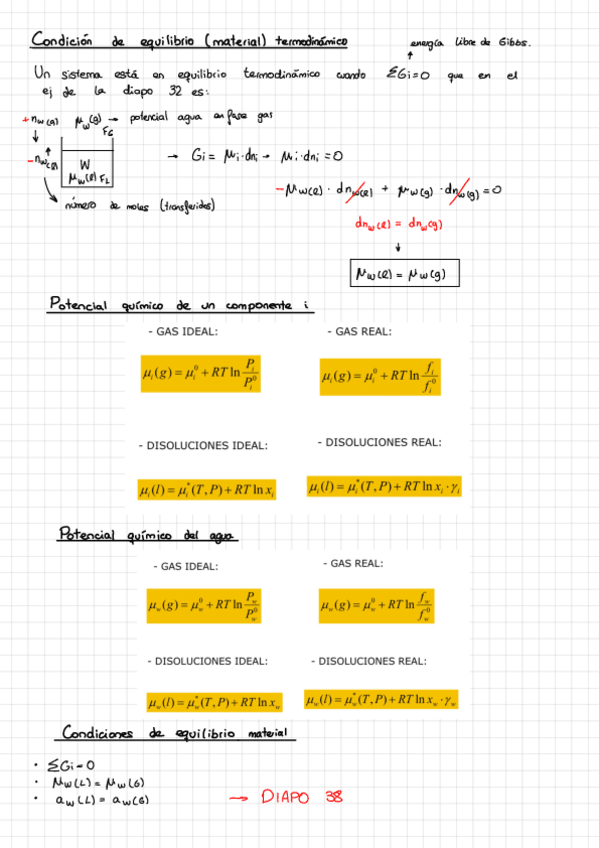 Condición de equilibrio (material) termodinámico
energía libre de Gibbs.
Un sistema está en equilibrio termodinámico cuando ΣGi=0 que en el
ej de la diapo 32 es:
+ nw(g) μw(g) → potencial agua en fase gas
FG
- nw(l)
W
μw(l) FL
número de moles (transferidos)
→ Gi = μi·dni → μi·dni = 0
-μw(l) · dnw(l) + μw(g) · dnw(g) = 0
dnw(l) = dnw(g)
↓
μw(l) = μw(g)
Potencial químico de un componente i
- GAS IDEAL: - GAS REAL:
μi(g) = μi⁰ + RT ln Pi/Pi⁰ μi(g) = μi⁰ + RT ln fi/fi⁰
- DISOLUCIONES IDEAL: - DISOLUCIONES REAL:
μi(l) = μi*(T, P) + RT ln xi μi(l) = μi*(T, P) + RT ln xi · γi
Potencial químico del agua
- GAS IDEAL: - GAS REAL:
μw(g) = μw⁰ + RT ln Pw/Pw⁰ μw(g) = μw⁰ + RT ln fw/fw⁰
- DISOLUCIONES IDEAL: - DISOLUCIONES REAL:
μw(l) = μw*(T, P) + RT ln xw μw(l) = μw*(T, P) + RT ln xw · γw
Condiciones de equilibrio material
· ΣGi = 0
· μw(L) = μw(G)
· aw(L) = aw(G) → DIAPO 38